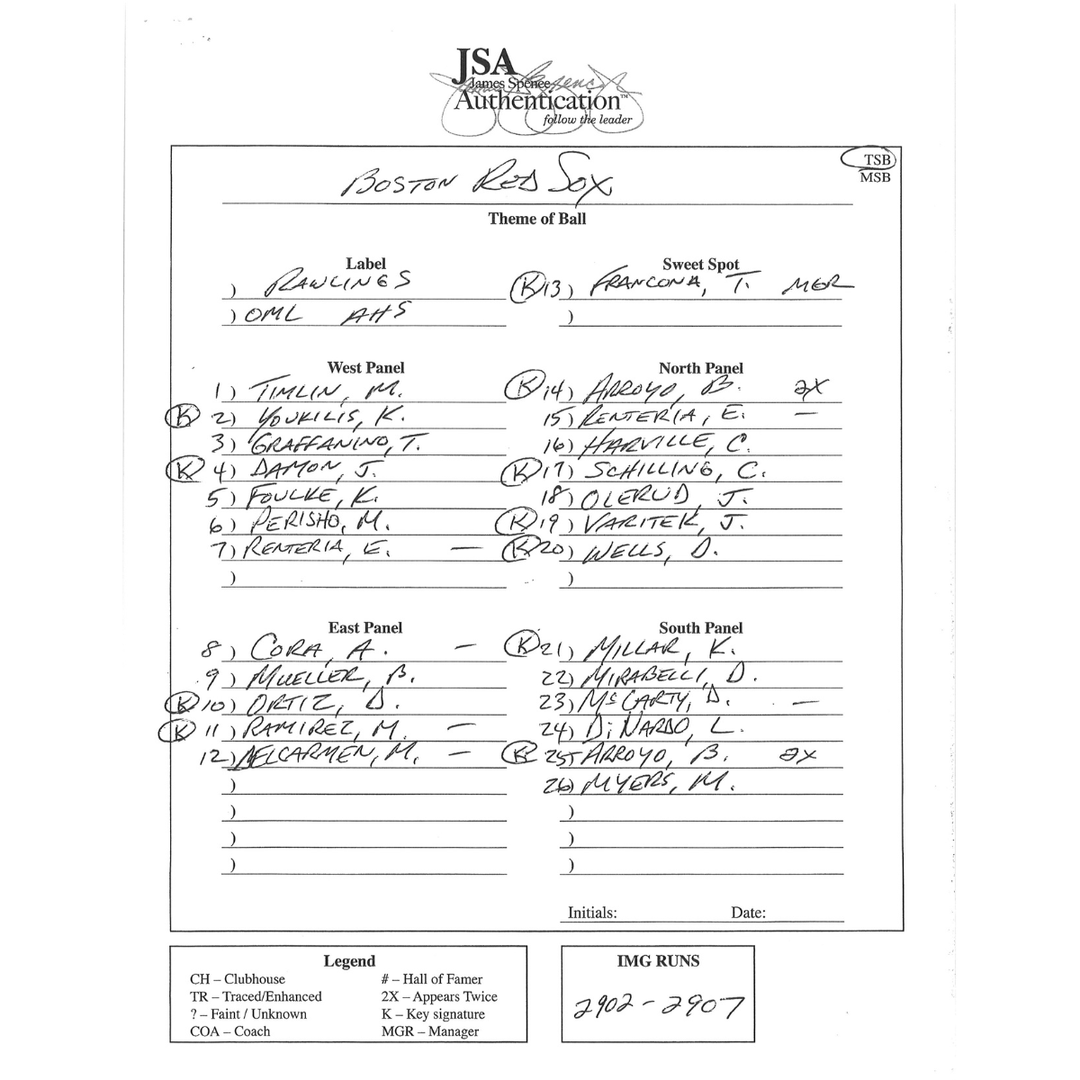 JSA
James Spence
Authentication™
follow the leader
TSB
MSB
BOSTON RED SOX
Theme of Ball
Label
) RAWLINGS
) OML AHS
Sweet Spot
(K) 13) FRANCONA, T. MGR
)
West Panel
1) TIMLIN, M.
(K) 2) YOUKILIS, K.
3) GRAFFANINO, T.
(K) 4) DAMON, J.
5) FOULKE, K.
6) PERISHO, M.
7) RENTERIA, E. —
)
North Panel
(K) 14) ARROYO, B. 2X
15) RENTERIA, E. —
16) HARVILLE, C.
(K) 17) SCHILLING, C.
18) OLERUD, J.
(K) 19) VARITEK, J.
(K) 20) WELLS, D.
)
East Panel
8) CORA, A. —
9) MUELLER, B.
(K) 10) ORTIZ, D.
(K) 11) RAMIREZ, M. —
12) DELCARMEN, M. —
)
)
)
)
South Panel
(K) 21) MILLAR, K.
22) MIRABELLI, D.
23) McCARTY, D. —
24) DiNARDO, L.
(K) 25) ARROYO, B. 2X
26) MYERS, M.
)
)
)
Initials: Date:
Legend
CH – Clubhouse # – Hall of Famer
TR – Traced/Enhanced 2X – Appears Twice
? – Faint / Unknown K – Key signature
COA – Coach MGR – Manager
IMG RUNS
2902 - 2907